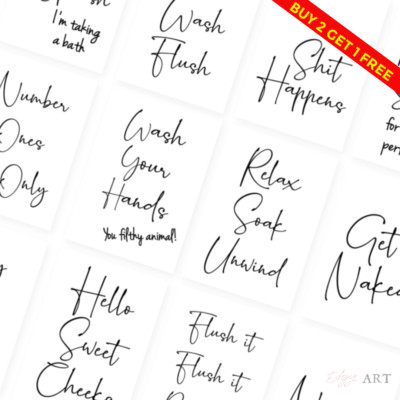 I'm taking
a bath
Wash
Flush
Shit
Happens
BUY 2 GET 1 FREE
for
Number
Ones
Only
Wash
Your
Hands
You filthy animal!
Relax
Soak
Unwind
Get
Hello
Sweet
Cheeks
Flush it
Flush it
ART